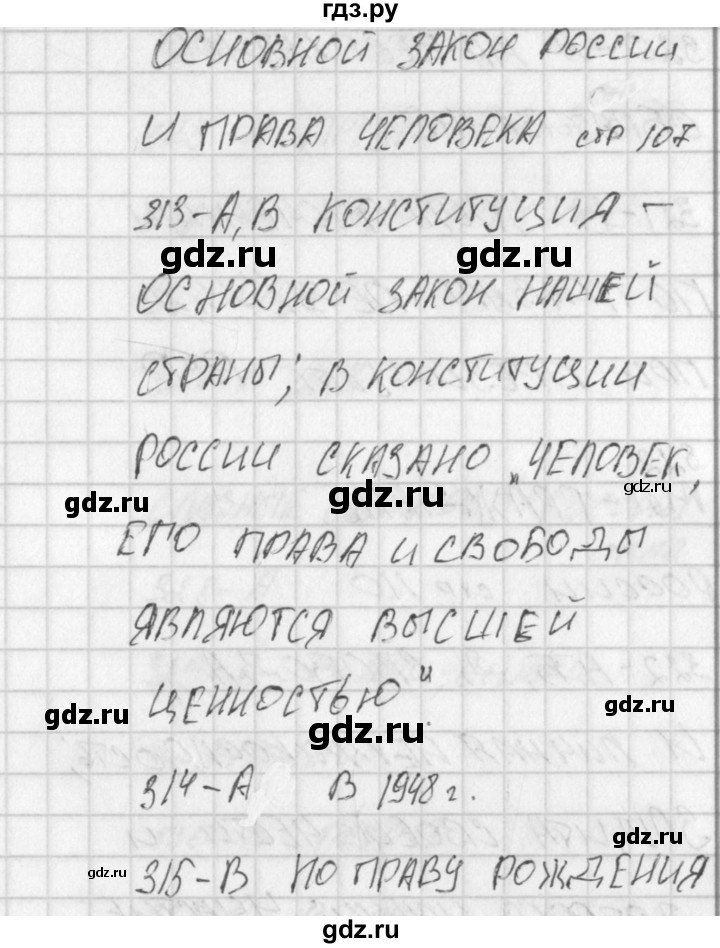 гдз.ру
ОСНОВНОЙ ЗАКОН РОССИИ
И ПРАВА ЧЕЛОВЕКА стр 107
313-А,В КОНСТИТУЦИЯ -
gdz.ru gdz.ru
ОСНОВНОЙ ЗАКОН НАШЕЙ
СТРАНЫ; В КОНСТИТУЦИИ
РОССИИ СКАЗАНО „ЧЕЛОВЕК,
gdz.ru gdz.ru gdz.ru
ЕГО ПРАВА И СВОБОДЫ
ЯВЛЯЮТСЯ ВЫСШЕЙ
ЦЕННОСТЬЮ".
gdz.ru gdz.ru gdz.ru
314-А В 1948 г.
gdz.ru
315-В ПО ПРАВУ РОЖДЕНИЯ
gdz.ru
gdz.ru